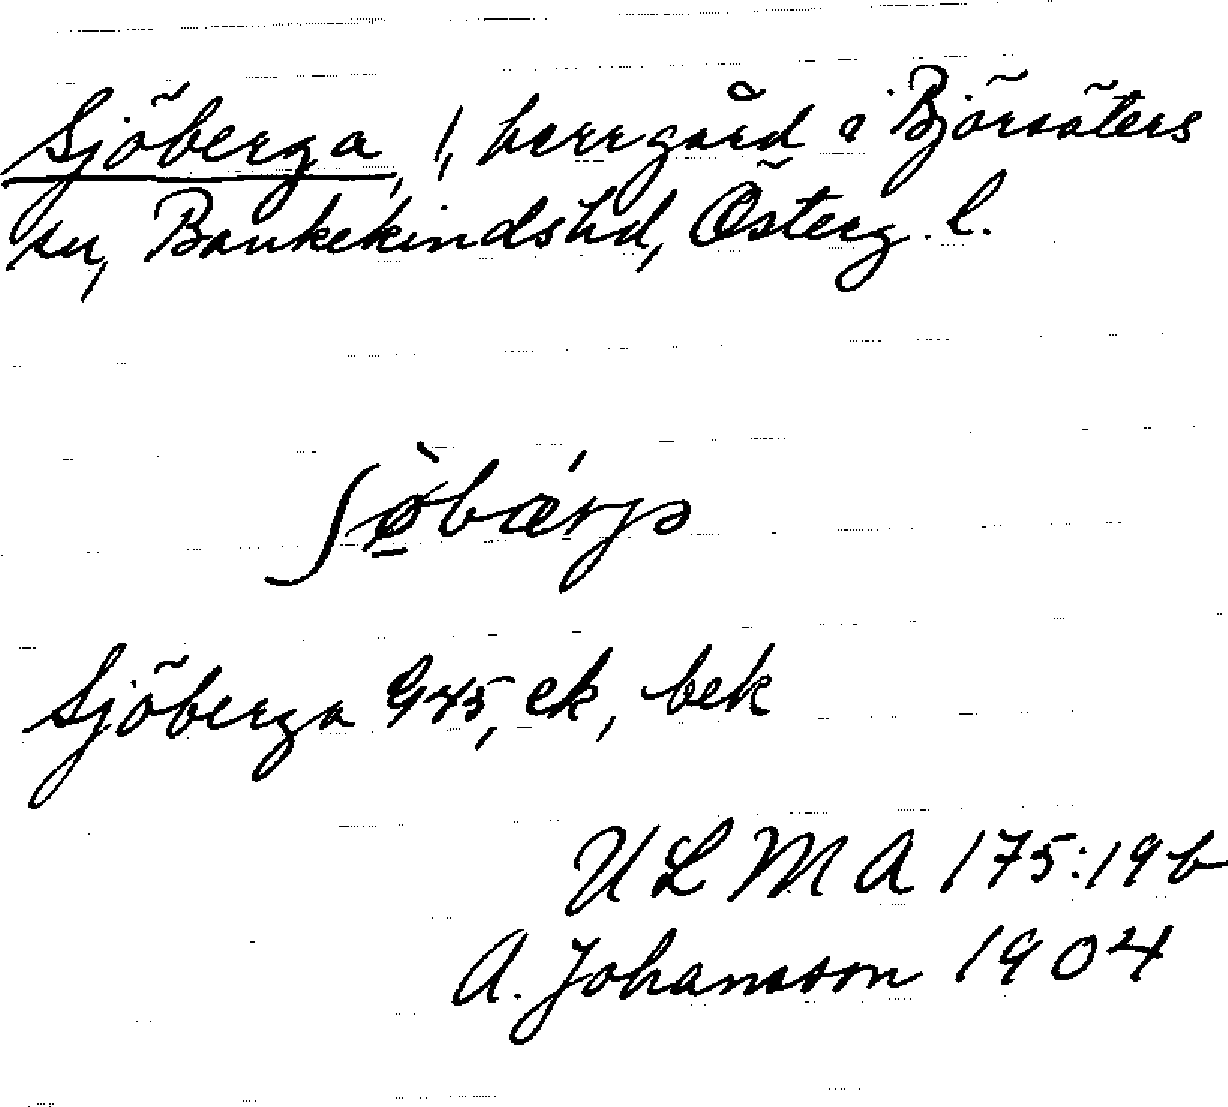 Sjöberga, 1, herrgård i Björsäters
sn, Bankekinds hd, Österg. l.
ʃø̀bǽrja
Sjöberga G45, ek, bek
ULMA 175:19b
A. Johansson 1904